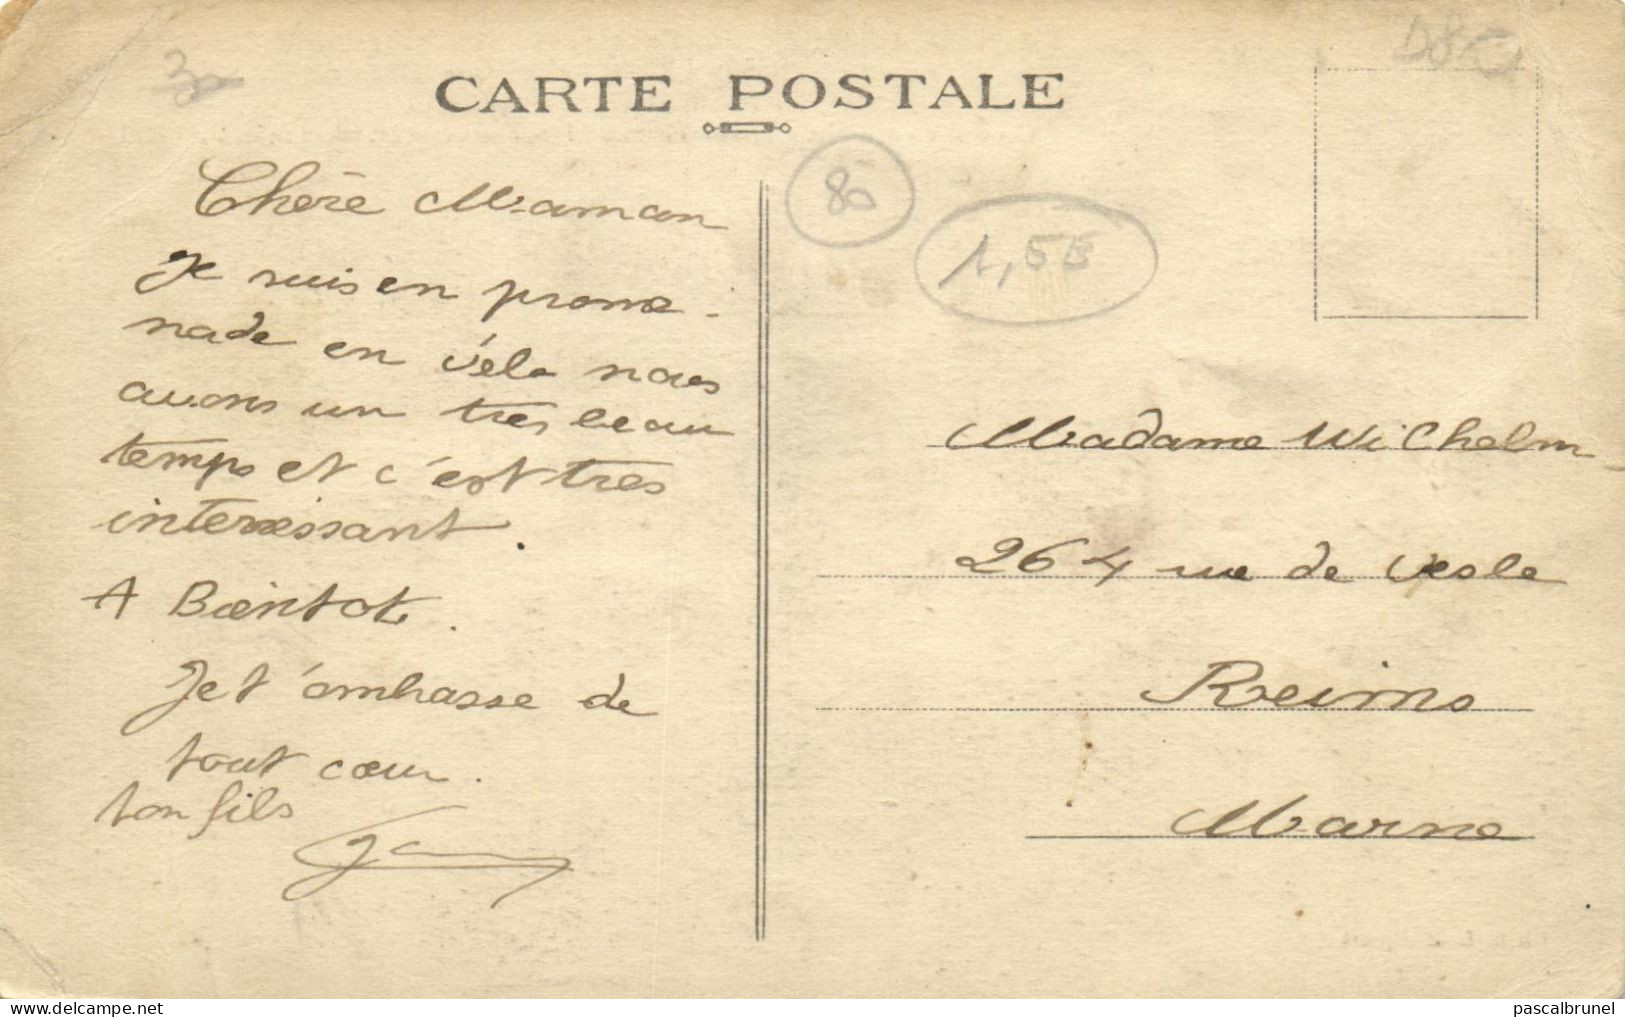 CARTE POSTALE
80
1,5E
Chère Maman
Je suis en prome-
nade en vélo nous
avons un tres beau
temps et c'est tres
interressant.
A Bientot.
Je t'embrasse de
tout cœur.
ton fils
Madame Wilhelm
264 rue de Vesle
Reims
Marne
pascalbrunel